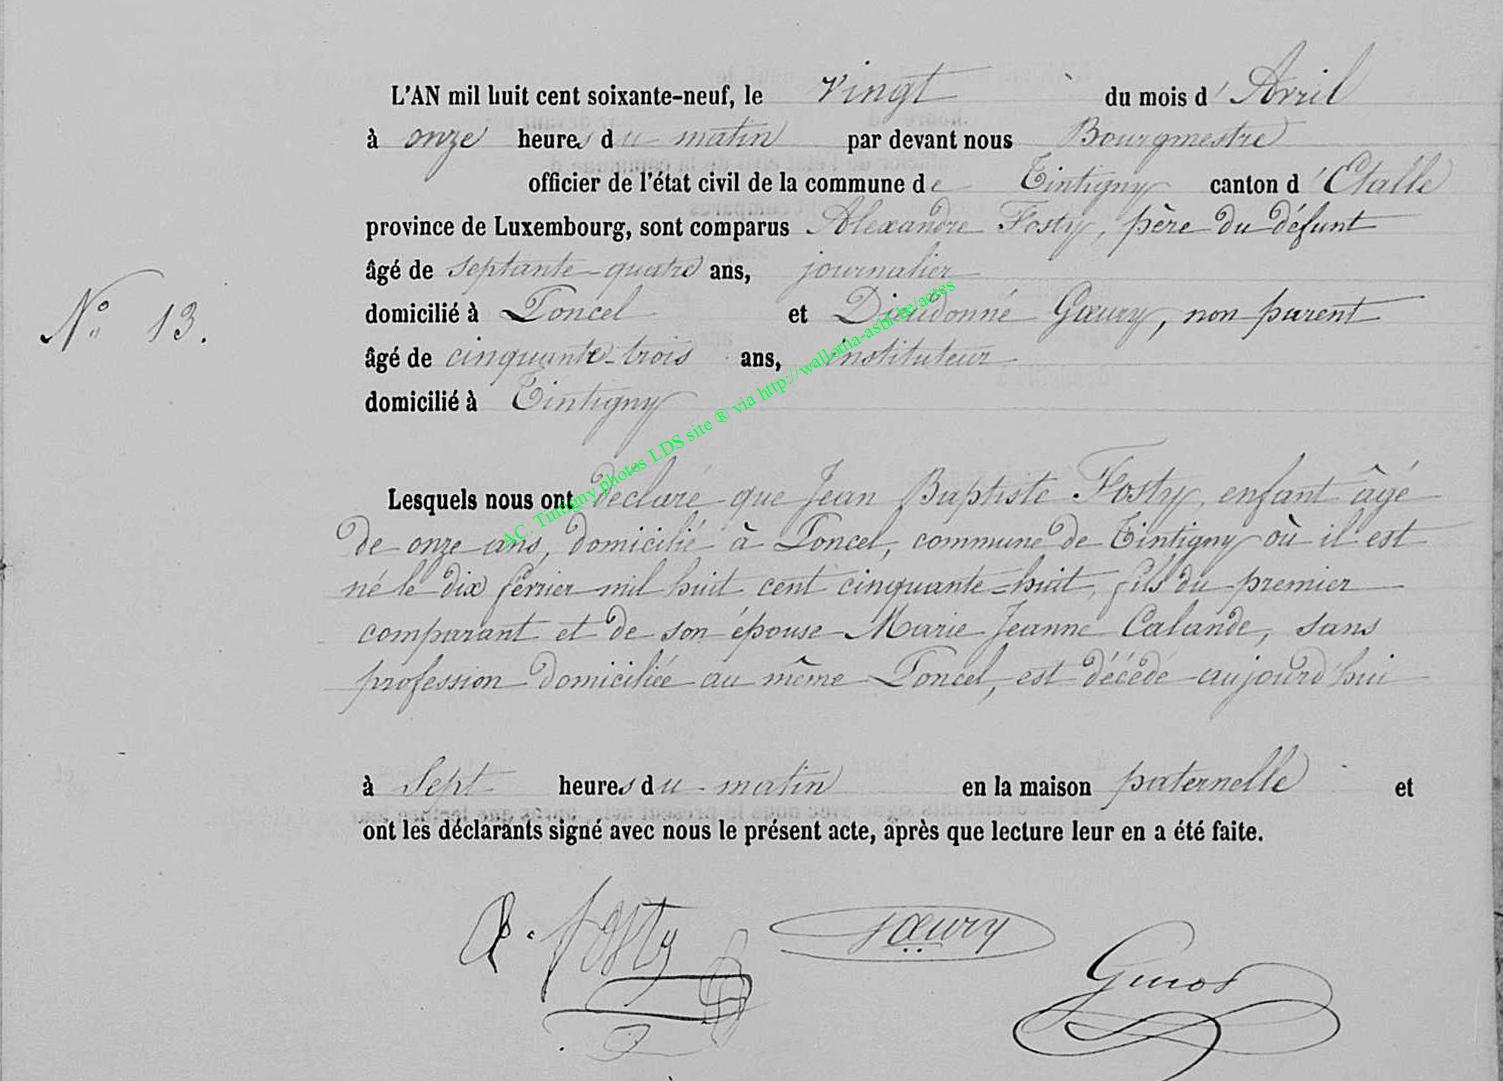 L'AN mil huit cent soixante-neuf, le vingt du mois d'Avril
à onze heures du matin par devant nous Bourgmestre
officier de l'état civil de la commune de Tintigny canton d'Etalle
province de Luxembourg, sont comparus Alexandre Fosty, père du défunt
âgé de septante-quatre ans, journalier
N° 13.
domicilié à Poncel et Dieudonné Gœury, non parent
âgé de cinquante-trois ans, instituteur
domicilié à Tintigny
AC. Tintigny photos LDS site ® via http://wallonia-asbl.be/actes
Lesquels nous ont déclaré que Jean Baptiste Fosty, enfant âgé
de onze ans, domicilié à Poncel, commune de Tintigny où il est
né le dix février mil huit cent cinquante-huit, fils du premier
comparant et de son épouse Marie Jeanne Calande, sans
profession domiciliée au même Poncel, est décédé aujourd'hui
à sept heures du matin en la maison paternelle et
ont les déclarants signé avec nous le présent acte, après que lecture leur en a été faite.
A. Fosty Gœury